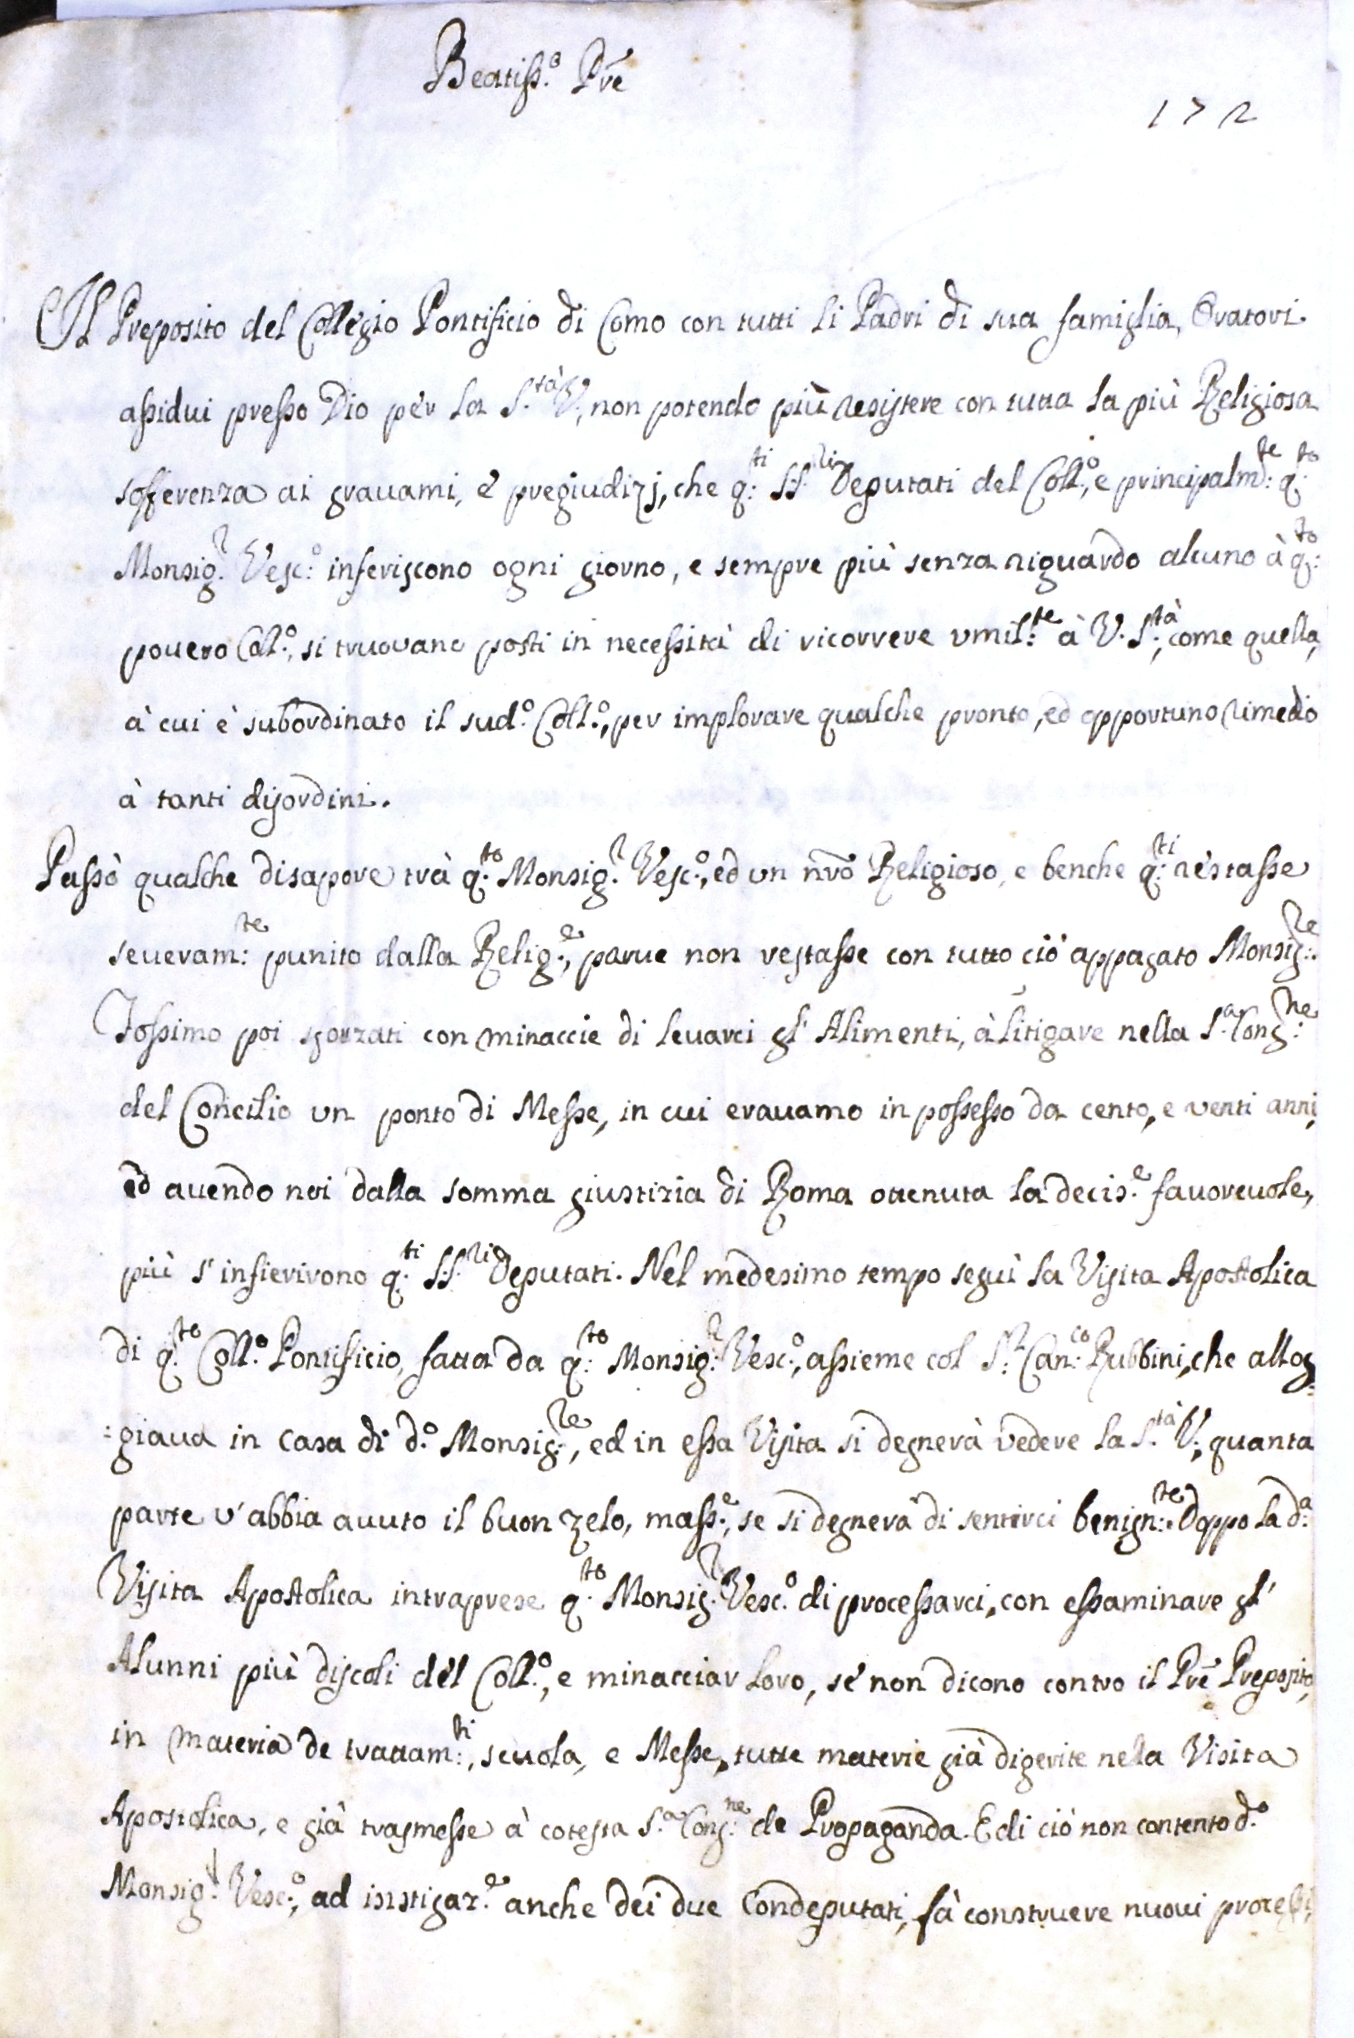 Beatiss.o Pre
172
Il Preposito del Collegio Pontificio di Como con tutti li Padri di sua famiglia, Oratori
assidui presso Dio per la S.tà V., non potendo più resistere con tutta la più Religiosa
sofferenza ai gravami, e pregiudizj, che q.ti SS.ri Deputati del Coll.o, e principalm.te q.to
Monsig.r Vesc.o inferiscono ogni giorno, e sempre più senza riguardo alcuno à q.to
povero Col.o, si truovano posti in necessità di ricorrere umil.te à V. S.tà, come quella,
à cui è subordinato il sud.o Coll.o, per implorare qualche pronto, ed opportuno rimedio
à tanti disordini.
Passò qualche disapore trà q.to Monsig.r Vesc.o, ed un nro Religioso, e benche q.ti restasse
severam.te punito dalla Relig.e, parve non restasse con tutto ciò appagato Monsig.re.
Fossimo poi sforzati con minaccie di levarci gl' Alimenti, à litigare nella S.a Cong.ne
del Concilio un ponto di Messe, in cui eravamo in possesso da cento, e venti anni,
ed avendo noi dalla somma giustizia di Roma ottenuta la decis.e favorevole,
più s' infierirono q.ti SS.ri Deputati. Nel medesimo tempo seguì la Visita Apostolica
di q.to Coll.o Pontificio, fatta da q.to Monsig.r Vesc.o, assieme col S.r Can.co Rubbini, che allog=
=giava in casa di d.o Monsig.re, ed in essa Visita si degnerà vedere la S.tà V., quanta
parte v' abbia avuto il buon zelo, mass.e, se si degnerà di sentirci benign.te. Doppo la d.a
Visita Apostolica intraprese q.to Monsig.r Vesc.o di processarci, con essaminare gl'
Alunni più discoli del Coll.o, e minacciar loro, se non dicono contro il Pre Preposito,
in materia de trattam.ti, scuola, e Messe, tutte materie già digerite nela Visita
Apostolica, e già trasmesse à cotesta S.a Cong.ne de Propaganda. E di ciò non contento d.o
Monsig.r Vesc.o, ad instigaz.e anche dei due Condeputati, fà construere nuovi processi,